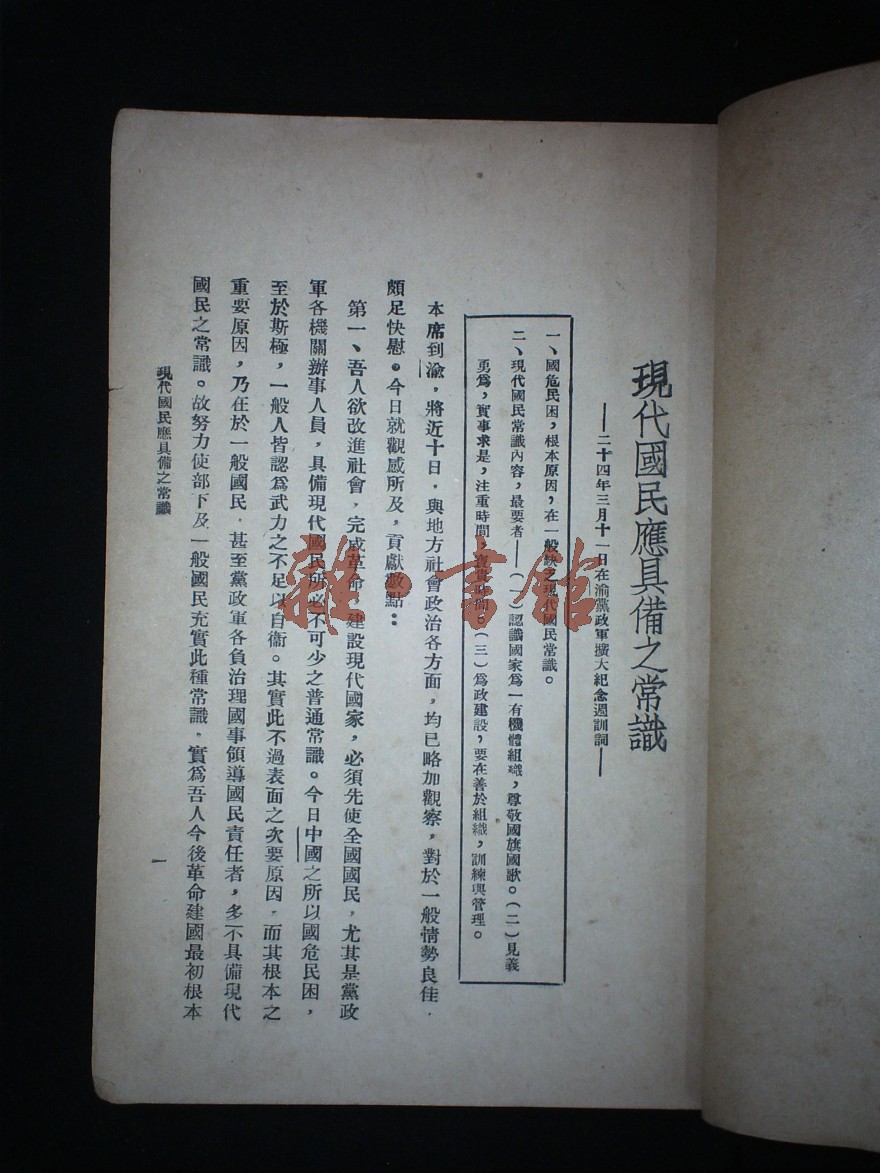 現代國民應具備之常識
——二十四年三月十一日在渝黨政軍擴大紀念週訓詞——
一、國危民困，根本原因，在一般缺乏現代國民常識。
二、現代國民常識內容，最要者——（一）認識國家爲一有機體組織，尊敬國旗國歌。（二）見義
勇爲，實事求是，注重時間，寶貴時間。（三）爲政建設，要在善於組織，訓練與管理。
本席到渝，將近十日，與地方社會政治各方面，均已略加觀察，對於一般情勢良佳，
頗足快慰。今日就觀感所及，貢獻數點：
第一、吾人欲改進社會，完成革命，建設現代國家，必須先使全國國民，尤其是黨政
軍各機關辦事人員，具備現代國民所必不可少之普通常識。今日中國之所以國危民困，
至於斯極，一般人皆認爲武力之不足以自衞。其實此不過表面之次要原因，而其根本之
重要原因，乃在於一般國民，甚至黨政軍各負治理國事領導國民責任者，多不具備現代
國民之常識。故努力使部下及一般國民充實此種常識，實爲吾人今後革命建國最初根本
現代國民應具備之常識
一
雜·書館